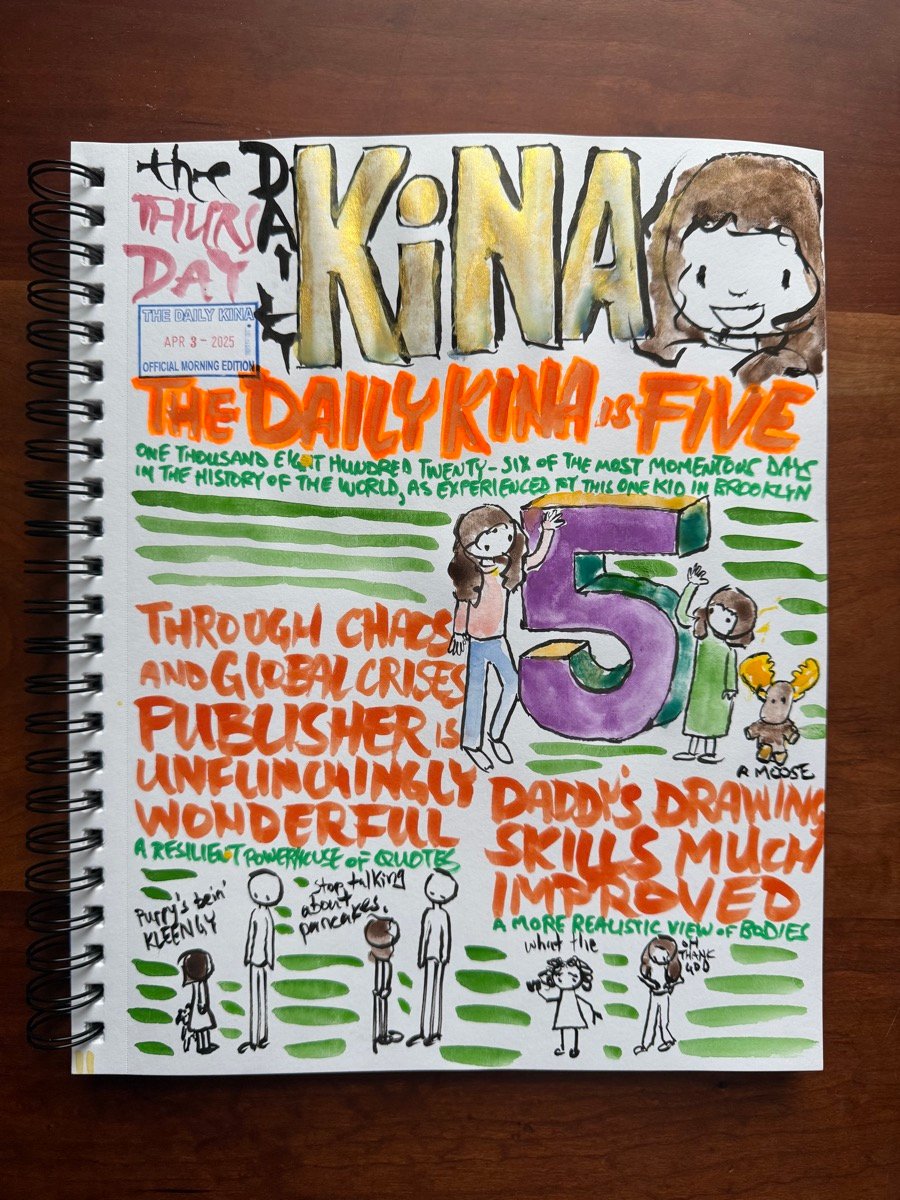 the DAILY
KiNA
THURS
DAY
THE DAILY KINA
APR 3 - 2025
OFFICIAL MORNING EDITION
THE DAILY KINA is FIVE
ONE THOUSAND EIGHT HUNDRED TWENTY-SIX OF THE MOST MOMENTOUS DAYS
IN THE HISTORY OF THE WORLD, AS EXPERIENCED BY THIS ONE KID IN BROOKLYN
5
THROUGH CHAOS
AND GLOBAL CRISES
PUBLISHER IS
UNFLINCHINGLY
WONDERFUL
A RESILIENT POWERHOUSE OF QUOTES
Puppy's bein'
KLEENGY
Stop talking
about
pancakes.
A MOOSE
DADDY'S DRAWING
SKILLS MUCH
IMPROVED
A MORE REALISTIC VIEW OF BODIES
what the
OH
THANK
GOD